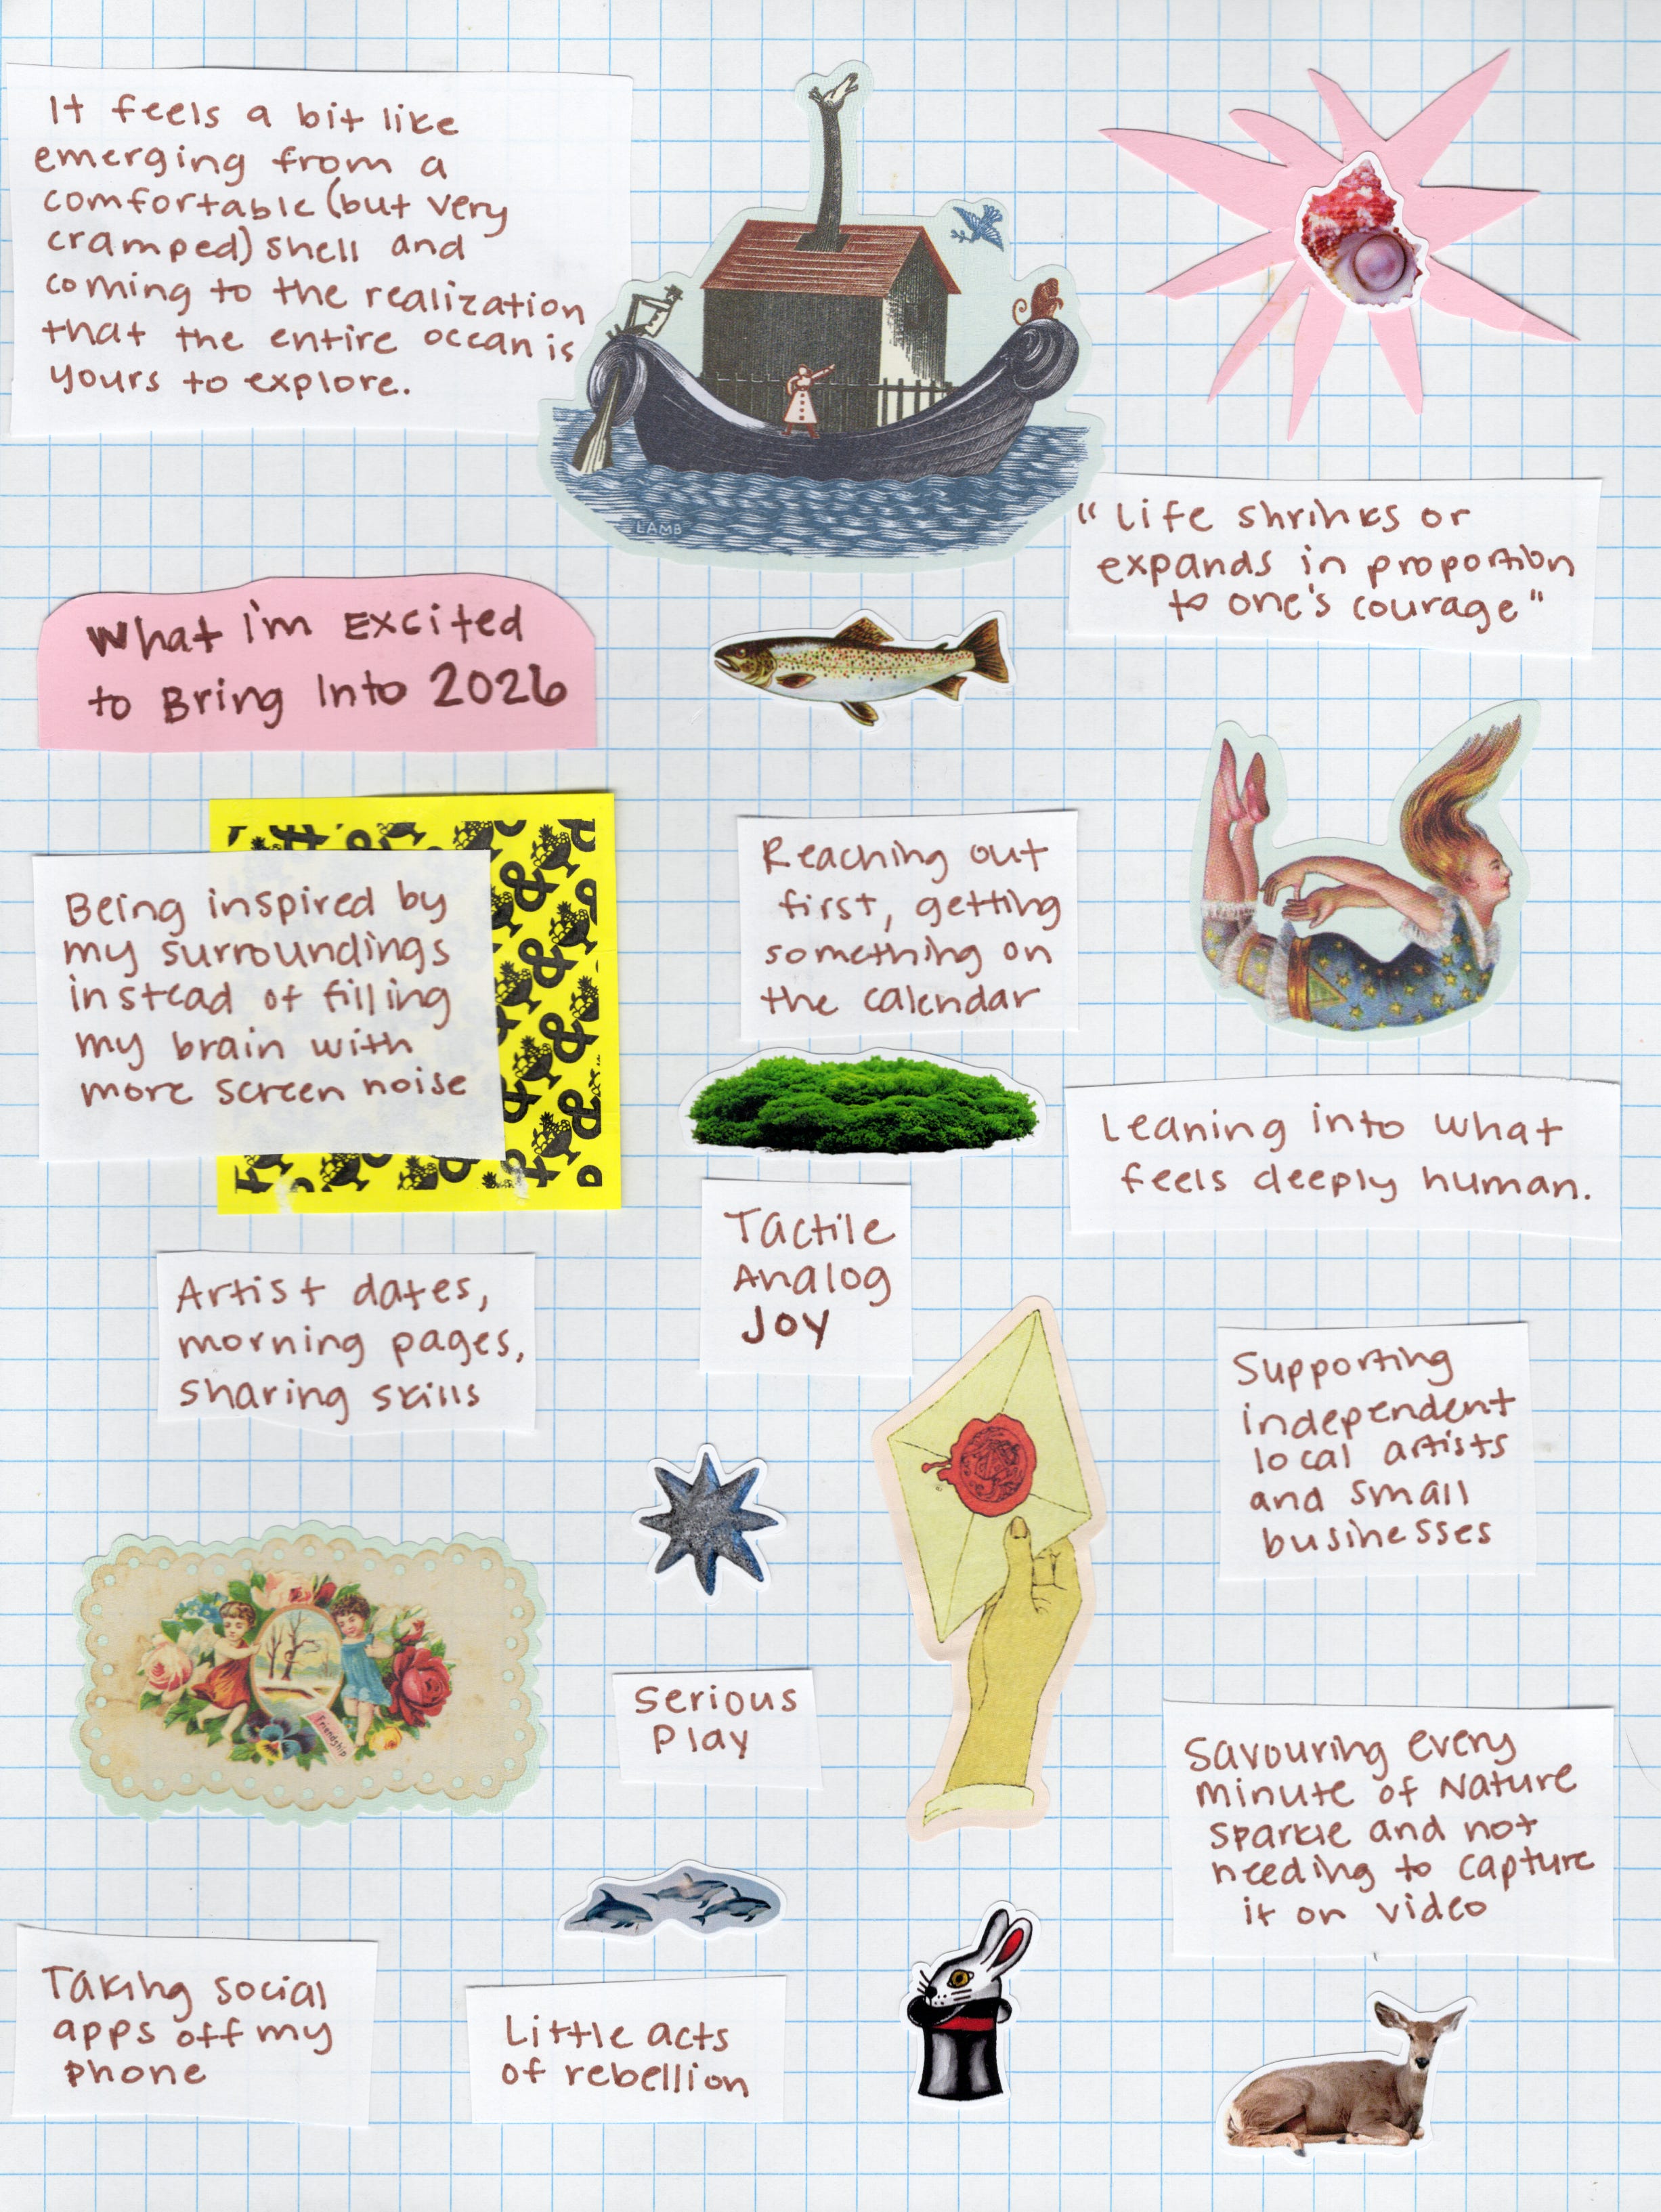 It feels a bit like
emerging from a
comfortable (but very
cramped) shell and
coming to the realization
that the entire ocean is
yours to explore.
LAMB
"Life shrinks or
expands in proportion
to one's courage"
What I'm Excited
to Bring Into 2026
Being inspired by
my surroundings
instead of filling
my brain with
more screen noise
Reaching out
first, getting
something on
the calendar
Leaning into what
feels deeply human.
Artist dates,
morning pages,
sharing skills
Tactile
Analog
Joy
Supporting
independent
local artists
and small
businesses
Friendship
Serious
Play
Savouring every
minute of Nature
sparkle and not
needing to capture
it on video
Taking social
apps off my
phone
Little acts
of rebellion